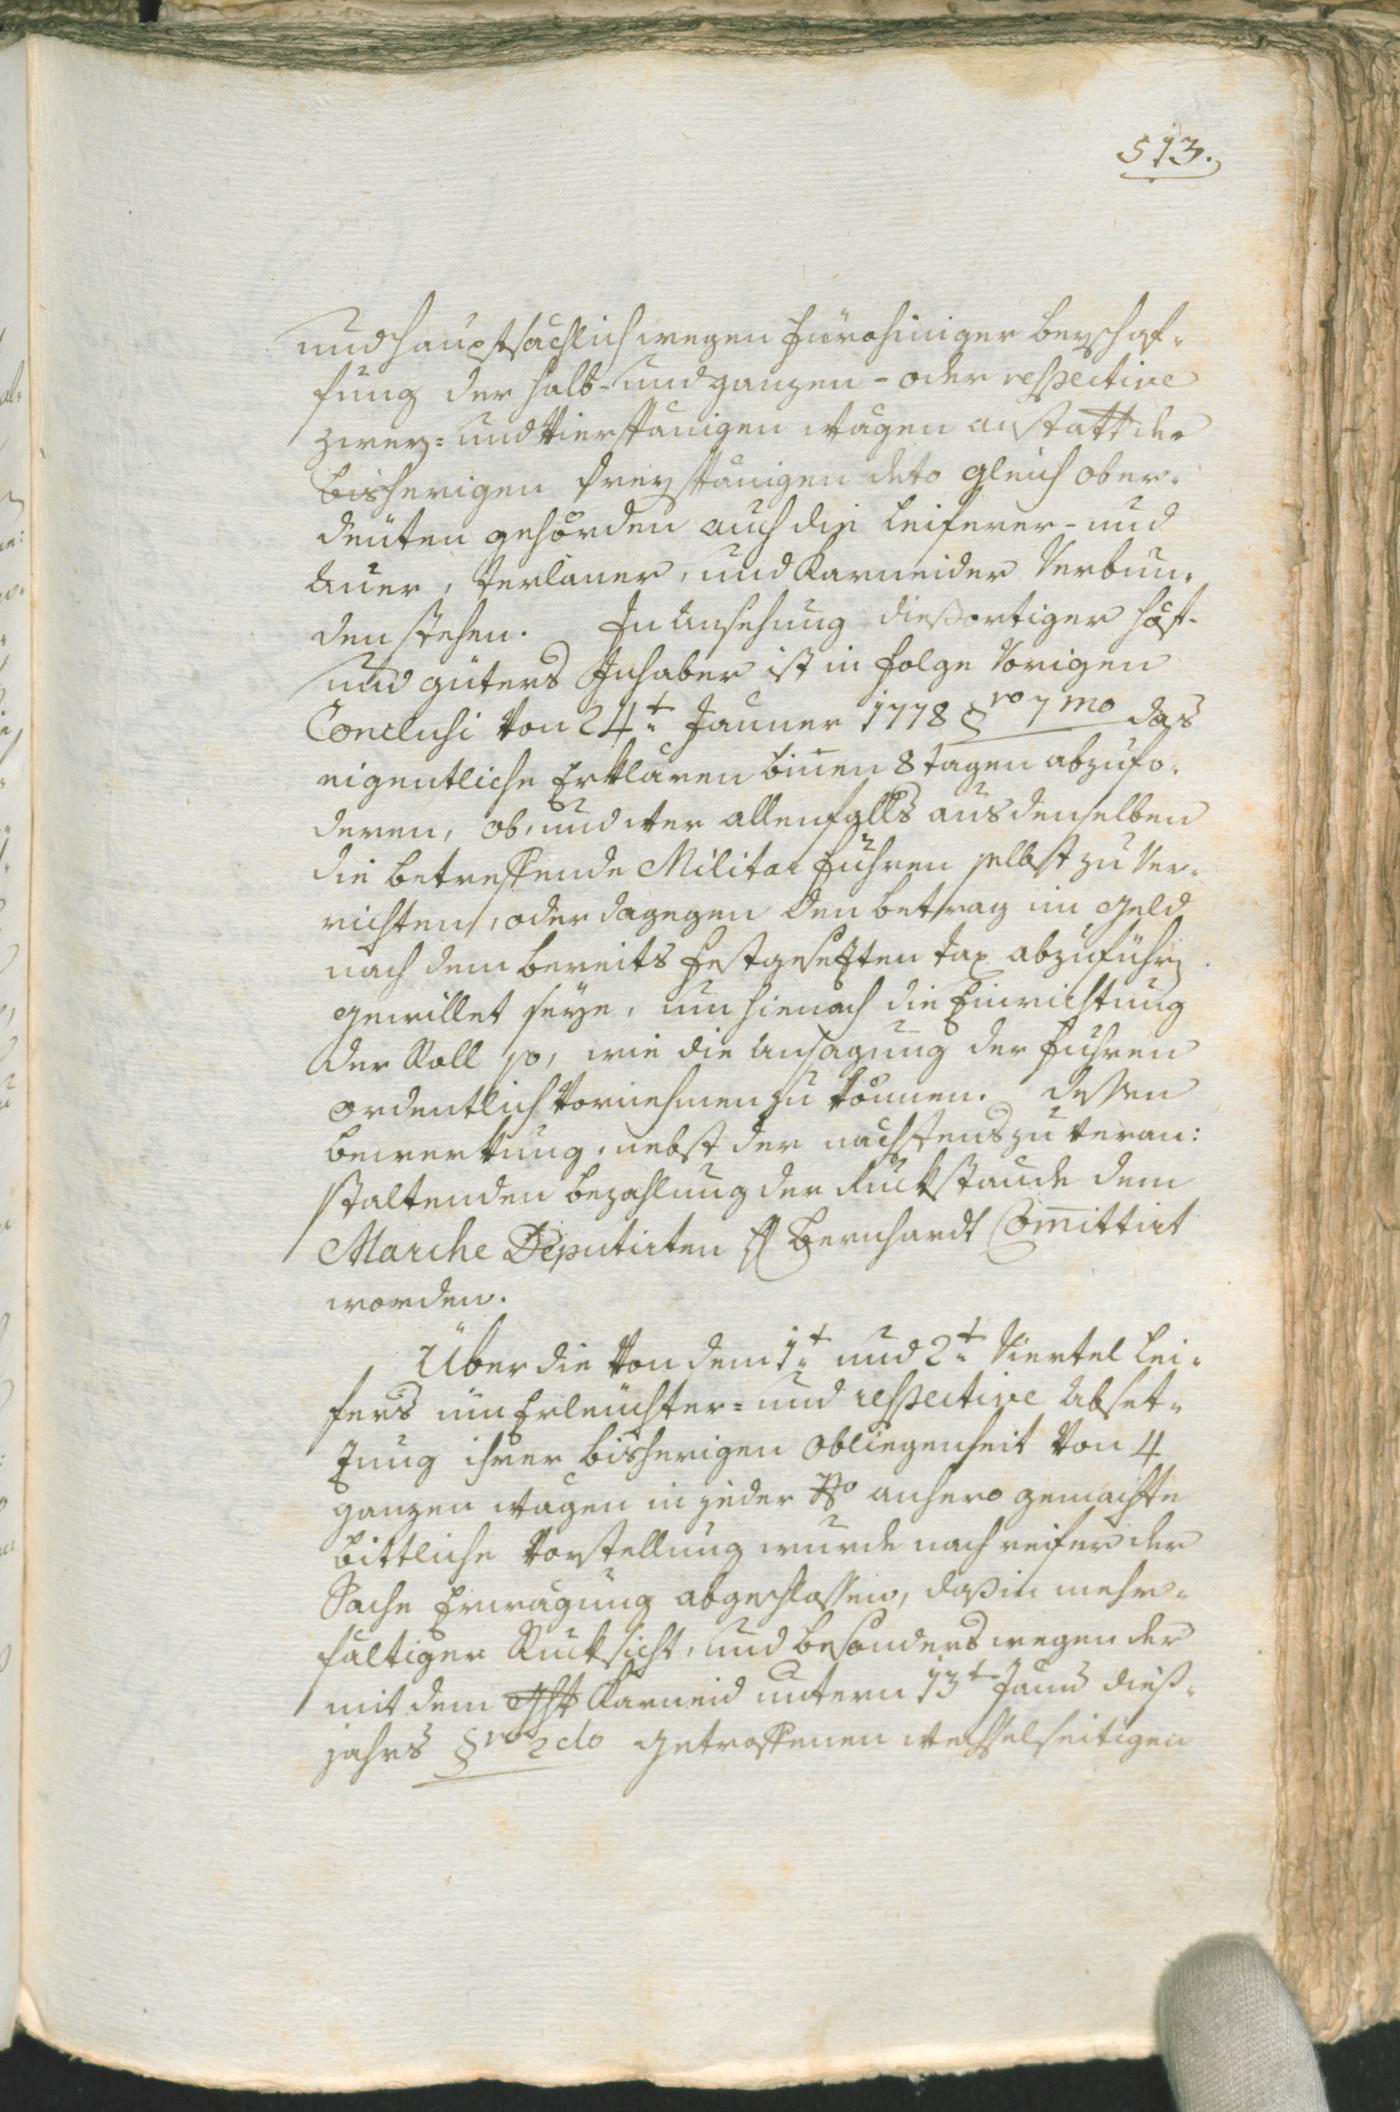 513.
und hauptsächlich wegen fürohiniger beyschaf¬
fung der halb- und ganzen - oder respective
zwey= und Vierspänigen wägen anstatt der
bisherigen dreyspänigen deto gleich ober¬
deüten gehörden auch die Leiferer- und
Auer, Terlaner, und Karneider Verbun¬
den stehen. In Ansehung dießortiger höf-
und güters Inhaber ist in folge Vorigen
Conclusi Von 24t: Jauner 1778 §ro 7mo das
eigentliche Erklären binen 8 tagen abzufo¬
deren, ob, und wer allenfalls aus denselben
die betreffende Militar führen selbst zu Ver¬
richten, oder dagegen den betrag im geld
nach dem bereits festgesezten tax abzuführen
gewillet seye, um hienach die Einrichtung
der Roll so, wie die Ansagung der führen
ordentlich Vornehmen zu können. dessen
bewerkung, nebst der nächstens zu Veran:
staltenden bezahlung der Rückstände dem
Marche Deputirten H Bernhardt Comittirt
worden.
Über die Von dem 1t: und 2t: Viertel Lei¬
fers um Erleüchter= und respective Abset¬
zung ihrer bisherigen obliegenheit Von 4
ganzen wägen in jeder anhero gemachte
bittliche Vorstellung wurde nach reifer der
Sache Erwägung abgeschlossen, daß in mehr¬
fältiger Rücksicht, und besonders wegen der
mit dem Karneid unterm 13t Jauner dieß¬
jahrs §ro 2do getroffenen wechselseitigen